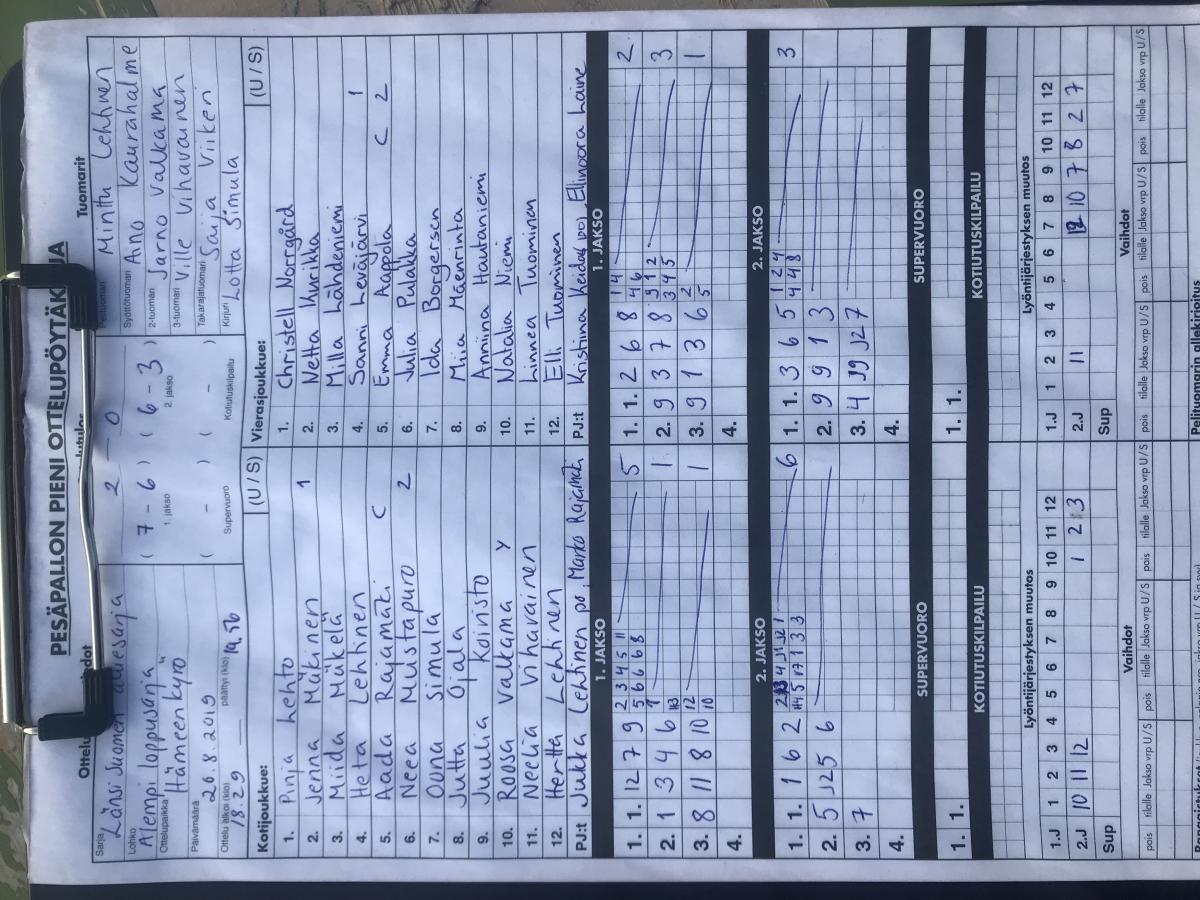 PESÄPALLON PIENI OTTELUPÖYTÄKIRJA
Tuomarit
Sarja Länsi Suomen aluesarja
Lohko Alempi loppusarja
Ottelupaikka Hämeenkyrö
Päivämäärä 26.8.2019
Ottelu alkoi (klo) 18.29 päättyi (klo) 19.56
2 - 0
( 7 - 6 ) ( 6 - 3 )
1. jakso 2. jakso
( - ) ( - )
Supervuoro Kotiutuskilpailu
Minttu Lehtinen
Syöttötuomari Aino Kaurahalme
2-tuomari Jarno Valkama
3-tuomari Ville Vihavainen
Takarajatuomari Saija Viikeri
Kirjuri Lotta Simula
Kotijoukkue: (U / S)
1. Pinja Lehto
2. Jenna Mäkinen 1
3. Miida Mäkelä
4. Heta Lehtinen
5. Aada Rajamäki C
6. Neea Mustapuro 2
7. Oona Simula
8. Jutta Ojala
9. Juulia Koivisto
10. Roosa Valkama Y
11. Neelia Vihavainen
12. Hertta Lehtinen
PJ:t Jukka Lehtinen pj, Marko Rajamäki
Vierasjoukkue: (U / S)
1. Christell Norrgård
2. Netta Kurikka
3. Milla Lähdeniemi
4. Sanni Leväjärvi 1
5. Emma Aappola C 2
6. Julia Pulakka
7. Ida Borgersen
8. Mia Mäenrinta
9. Anniina Hautaniemi
10. Natalia Niemi
11. Linnea Tuominen
12. Elli Tuominen
PJ:t Kristiina Ellinoora Laine
1. JAKSO
1. 1. 12 7 9 2 3 4 5 11 5
5 6 6 6 8
2. 1 3 4 6 1
3. 8 11 8 10 12 1
10
4.
1. JAKSO
1. 1. 2 6 8 1 4 2
4 6
2. 9 3 7 8 9 1 2 3
3 4 5
3. 9 1 3 6 2 1
5
4.
2. JAKSO
1. 1. 1 6 2 6
2. 5 J12 5 6
3. 7
4.
2. JAKSO
1. 1. 3 6 5 1 2 4 3
4 4 8
2. 9 9 1 3
3. 4 J9 J2 7
4.
SUPERVUORO
1. 1.
SUPERVUORO
1. 1.
KOTIUTUSKILPAILU
KOTIUTUSKILPAILU
Lyöntijärjestyksen muutos
1.J 1 2 3 4 5 6 7 8 9 10 11 12
2.J 10 11 12 1 2 3
Sup
Lyöntijärjestyksen muutos
1.J 1 2 3 4 5 6 7 8 9 10 11 12
2.J 11 12 10 7 8 2 7
Sup
Vaihdot
pois tilalle Jakso vrp U / S pois tilalle Jakso vrp U / S pois tilalle Jakso vrp U / S
Vaihdot
pois tilalle Jakso vrp U / S pois tilalle Jakso vrp U / S pois tilalle Jakso vrp U / S
Pelituomarin allekirjoitus